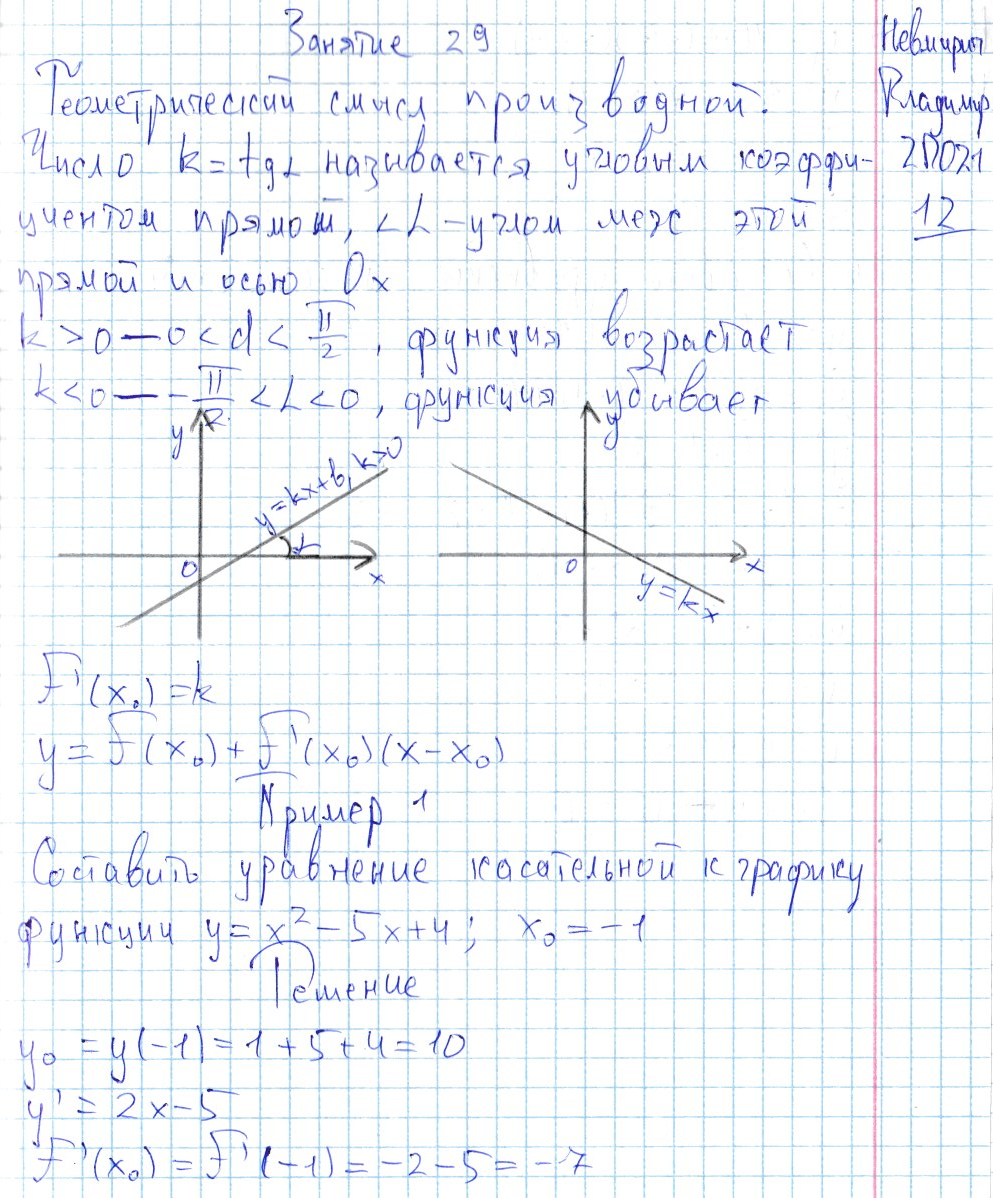 Занятие 29
Невмирич
Владимир
2П021
12
Геометрический смысл производной.
Число k = tg α называется угловым коэффи-
циентом прямой, <α – углом меж этой
прямой и осью Ox
k > 0 — 0 < α < π/2, функция возрастает
k < 0 — -π/2 < α < 0, функция убывает
y
y = kx + b, k > 0
α
0
x
y
0
x
y = kx
F'(x₀) = k
y = F(x₀) + F'(x₀)(x - x₀)
Пример 1
Составить уравнение касательной к графику
функции y = x² - 5x + 4; x₀ = -1
Решение
y₀ = y(-1) = 1 + 5 + 4 = 10
y' = 2x - 5
F'(x₀) = F'(-1) = -2 - 5 = -7